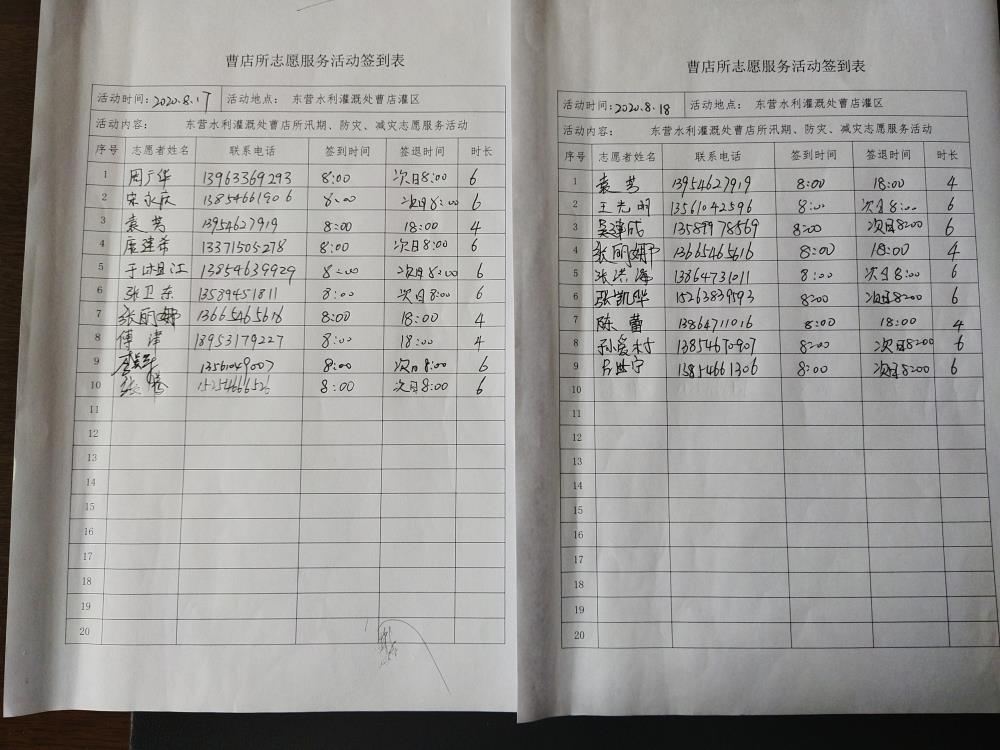 曹店所志愿服务活动签到表
活动时间：2020.8.17 活动地点： 东营水利灌溉处曹店灌区
活动内容： 东营水利灌溉处曹店所汛期、防灾、减灾志愿服务活动
序号 志愿者姓名 联系电话 签到时间 签退时间 时长
1 周广华 13963369293 8:00 次日8:00 6
2 宋永庆 13854661906 8:00 次日8:00 6
3 袁芳 13954627919 8:00 18:00 4
4 唐建希 13371505278 8:00 次日8:00 6
5 于洪江 13854639929 8:00 次日8:00 6
6 张卫东 13589451811 8:00 次日8:00 6
7 张丽娜 13665465616 8:00 18:00 4
8 傅津 18953179227 8:00 18:00 4
9 13561049007 8:00 次日8:00 6
10 8:00 次日8:00 6
11
12
13
14
15
16
17
18
19
20
曹店所志愿服务活动签到表
活动时间：2020.8.18 活动地点： 东营水利灌溉处曹店灌区
活动内容： 东营水利灌溉处曹店所汛期、防灾、减灾志愿服务活动
序号 志愿者姓名 联系电话 签到时间 签退时间 时长
1 袁芳 13954627919 8:00 18:00 4
2 王光明 13561042596 8:00 次日8:00 6
3 吴建成 13589978569 8:00 次日8:00 6
4 张丽娜 13665465616 8:00 18:00 4
5 张洪海 13864731011 8:00 次日8:00 6
6 张凯晔 15263839593 8:00 次日8:00 6
7 陈蕾 13864711016 8:00 18:00 4
8 孙爱村 13854670907 8:00 次日8:00 6
9 13854661306 8:00 次日8:00 6
10
11
12
13
14
15
16
17
18
19
20